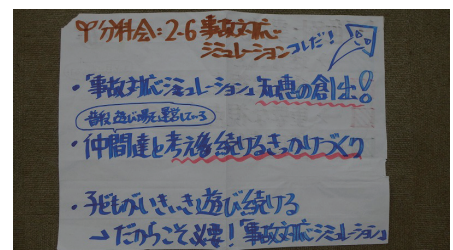 分科会:2-6 事故対応
シミュレーションコレだ!
・「事故対応シミュレーション」知恵の創出!
普段遊び場を運営している
・仲間達と考え続けるきっかけづくり
・子どもがいきいき遊び続ける
→だからこそ必要!「事故対応シミュレーション」